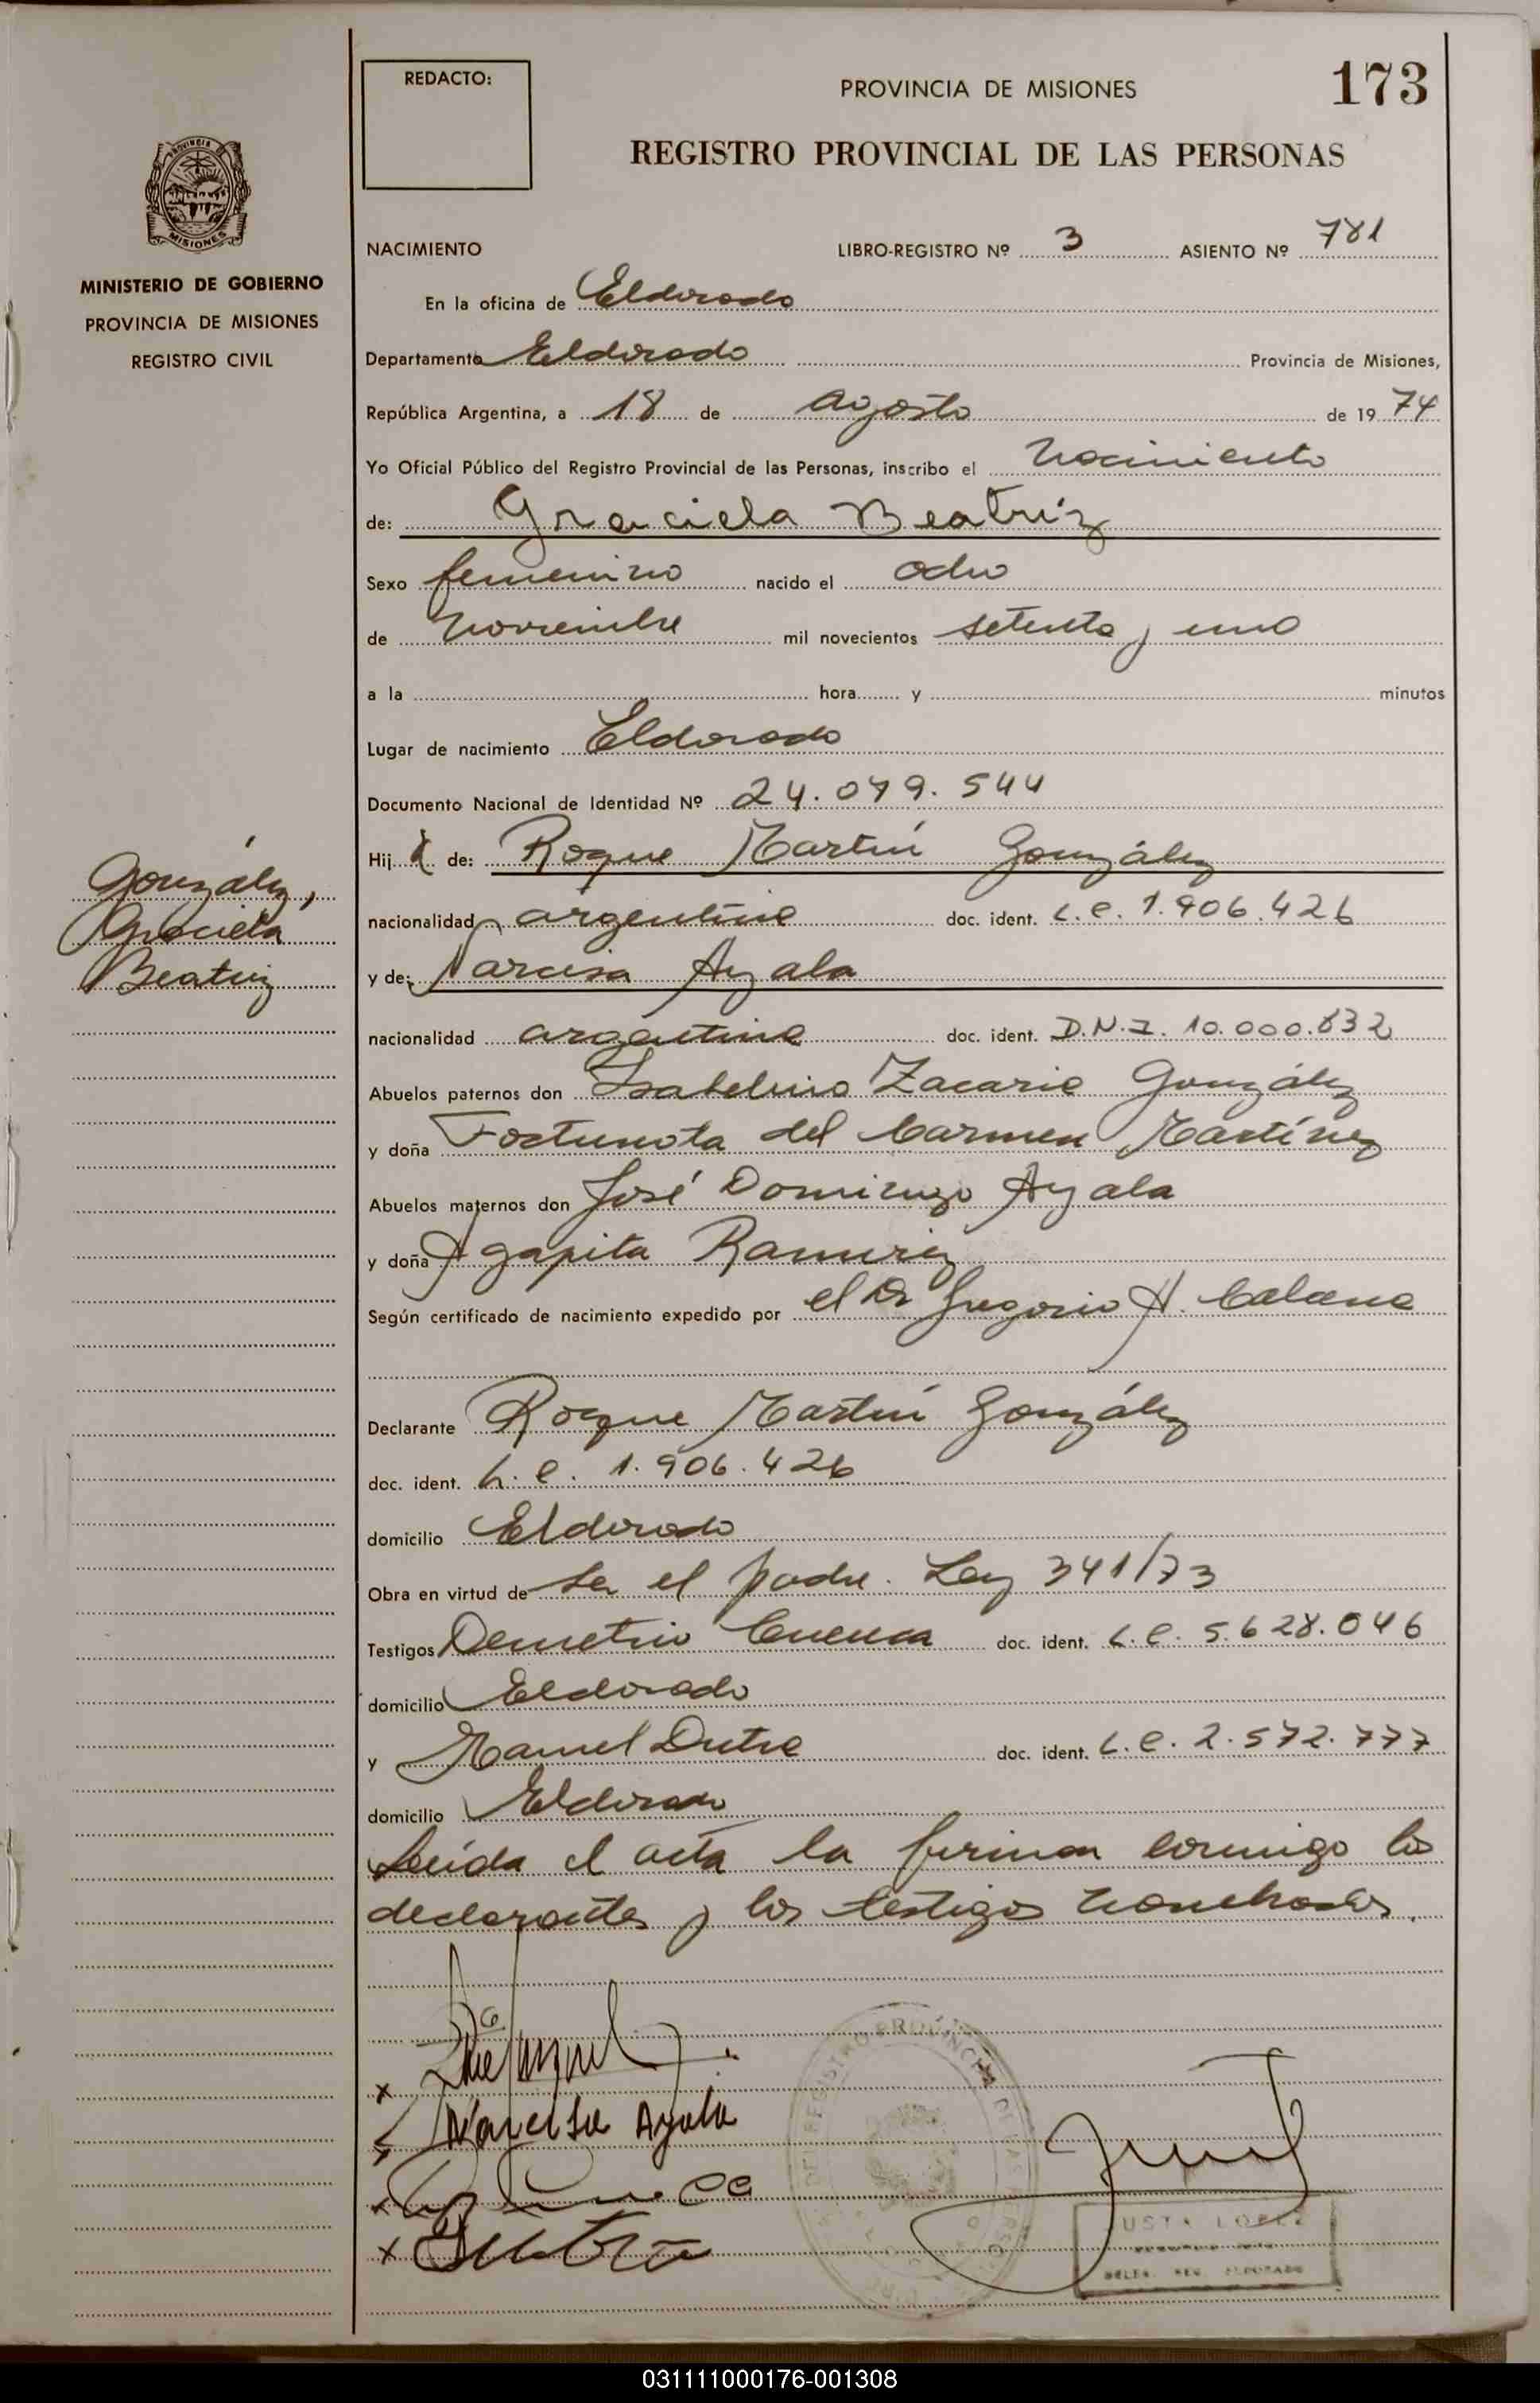 REDACTO:
PROVINCIA DE MISIONES
173
REGISTRO PROVINCIAL DE LAS PERSONAS
PROVINCIA DE
MISIONES
MINISTERIO DE GOBIERNO
PROVINCIA DE MISIONES
REGISTRO CIVIL
NACIMIENTO LIBRO-REGISTRO Nº 3 ASIENTO Nº 781
En la oficina de Eldorado
Departamento Eldorado Provincia de Misiones,
República Argentina, a 18 de agosto de 19 74
Yo Oficial Público del Registro Provincial de las Personas, inscribo el nacimiento
de: Graciela Beatriz
Sexo femenino nacido el ocho
de noviembre mil novecientos setenta y uno
a la hora y minutos
Lugar de nacimiento Eldorado
Documento Nacional de Identidad Nº 24.079.544
Hij a de: Roque Martín González
González,
Graciela
Beatriz
nacionalidad argentina doc. ident. L.e. 1.906.426
y de: Narcisa Ayala
nacionalidad argentina doc. ident. D.N.I. 10.000.832
Abuelos paternos don Isabelino Zacaria González
y doña Fortunata del Carmen Martínez
Abuelos maternos don José Domingo Ayala
y doña Agapita Ramirez
Según certificado de nacimiento expedido por el Dr Gregorio H.
Declarante Roque Martín González
doc. ident. L.e. 1.906.426
domicilio Eldorado
Obra en virtud de ser el padre. Ley 341/73
Testigos Demetrio Cuenca doc. ident. L.e. 5.628.046
domicilio Eldorado
y Manuel Dutra doc. ident. L.e. 2.572.777
domicilio Eldorado
Leída el acta la firman conmigo los
declarantes y los testigos nombrados.
x
Narcisa Ayala
x
x Dutra
REGISTRO PROVINCIAL DE LAS PERSONAS
JUSTA LOPEZ
031111000176-001308